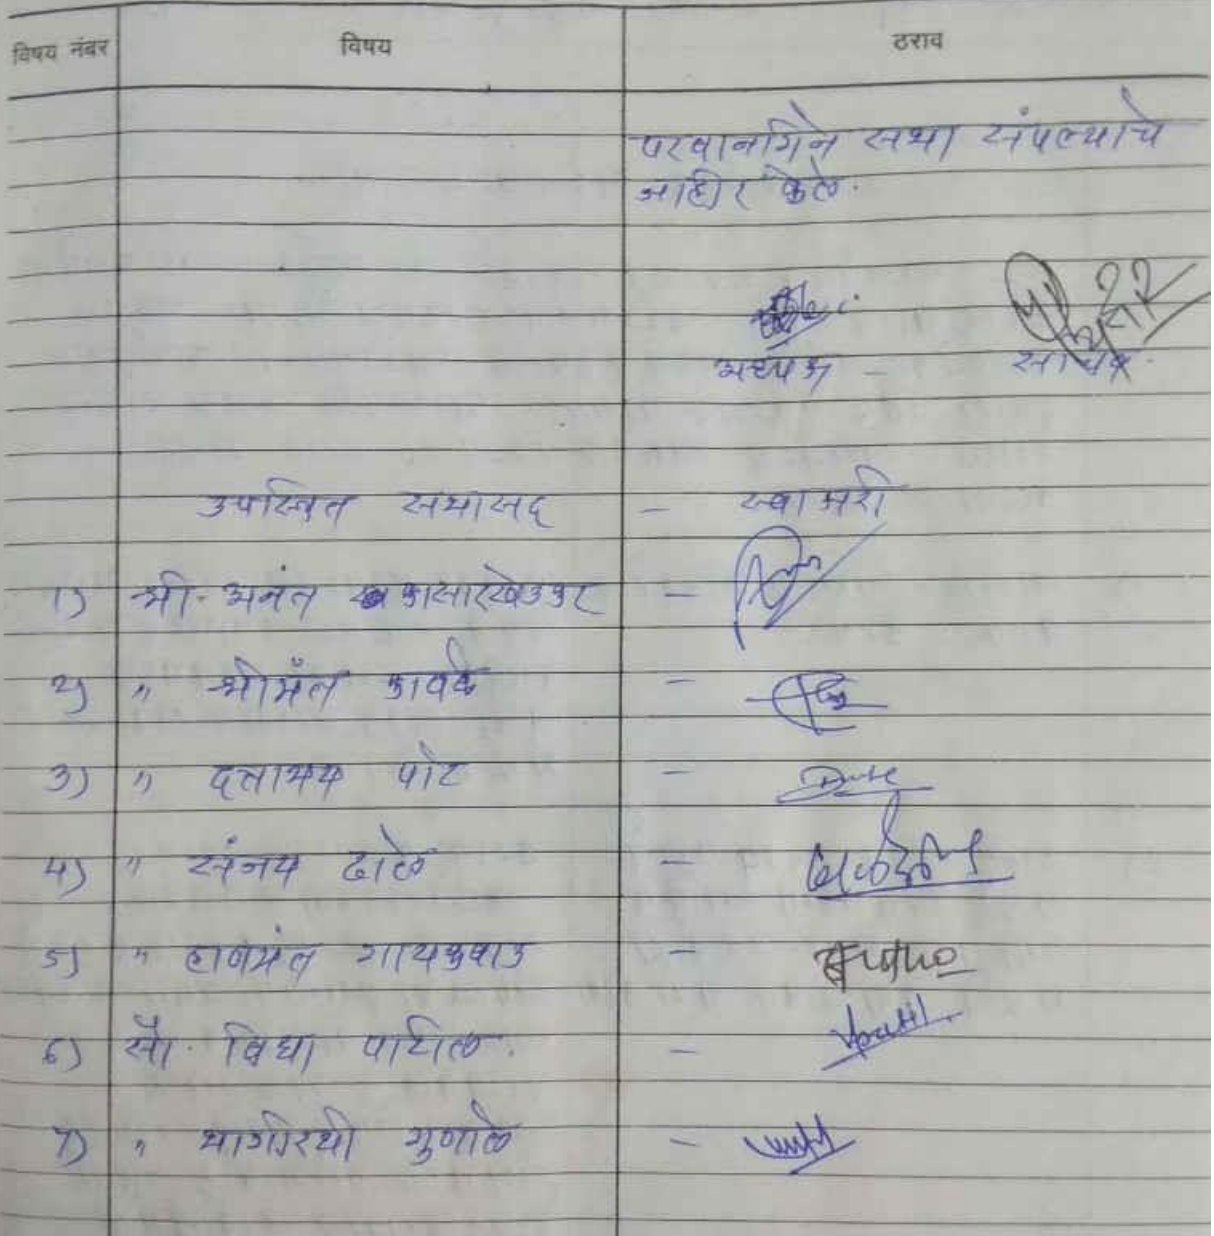 विषय नंबर विषय ठराव
परवानगिने सभा संपल्याचे
जाहीर केले.
अध्यक्ष - सचिव.
उपस्थित सभासद - स्वाक्षरी
1) श्री. अनंत कासारखेडकर -
2) " श्रीमंत कावळे -
3) " दत्तात्रय पोट -
4) " संजय ढाले -
5) " हणमंत गायकवाड -
6) सौ. विद्या पाटील. - Vpatil
7) " भागीरथी गुणाले -